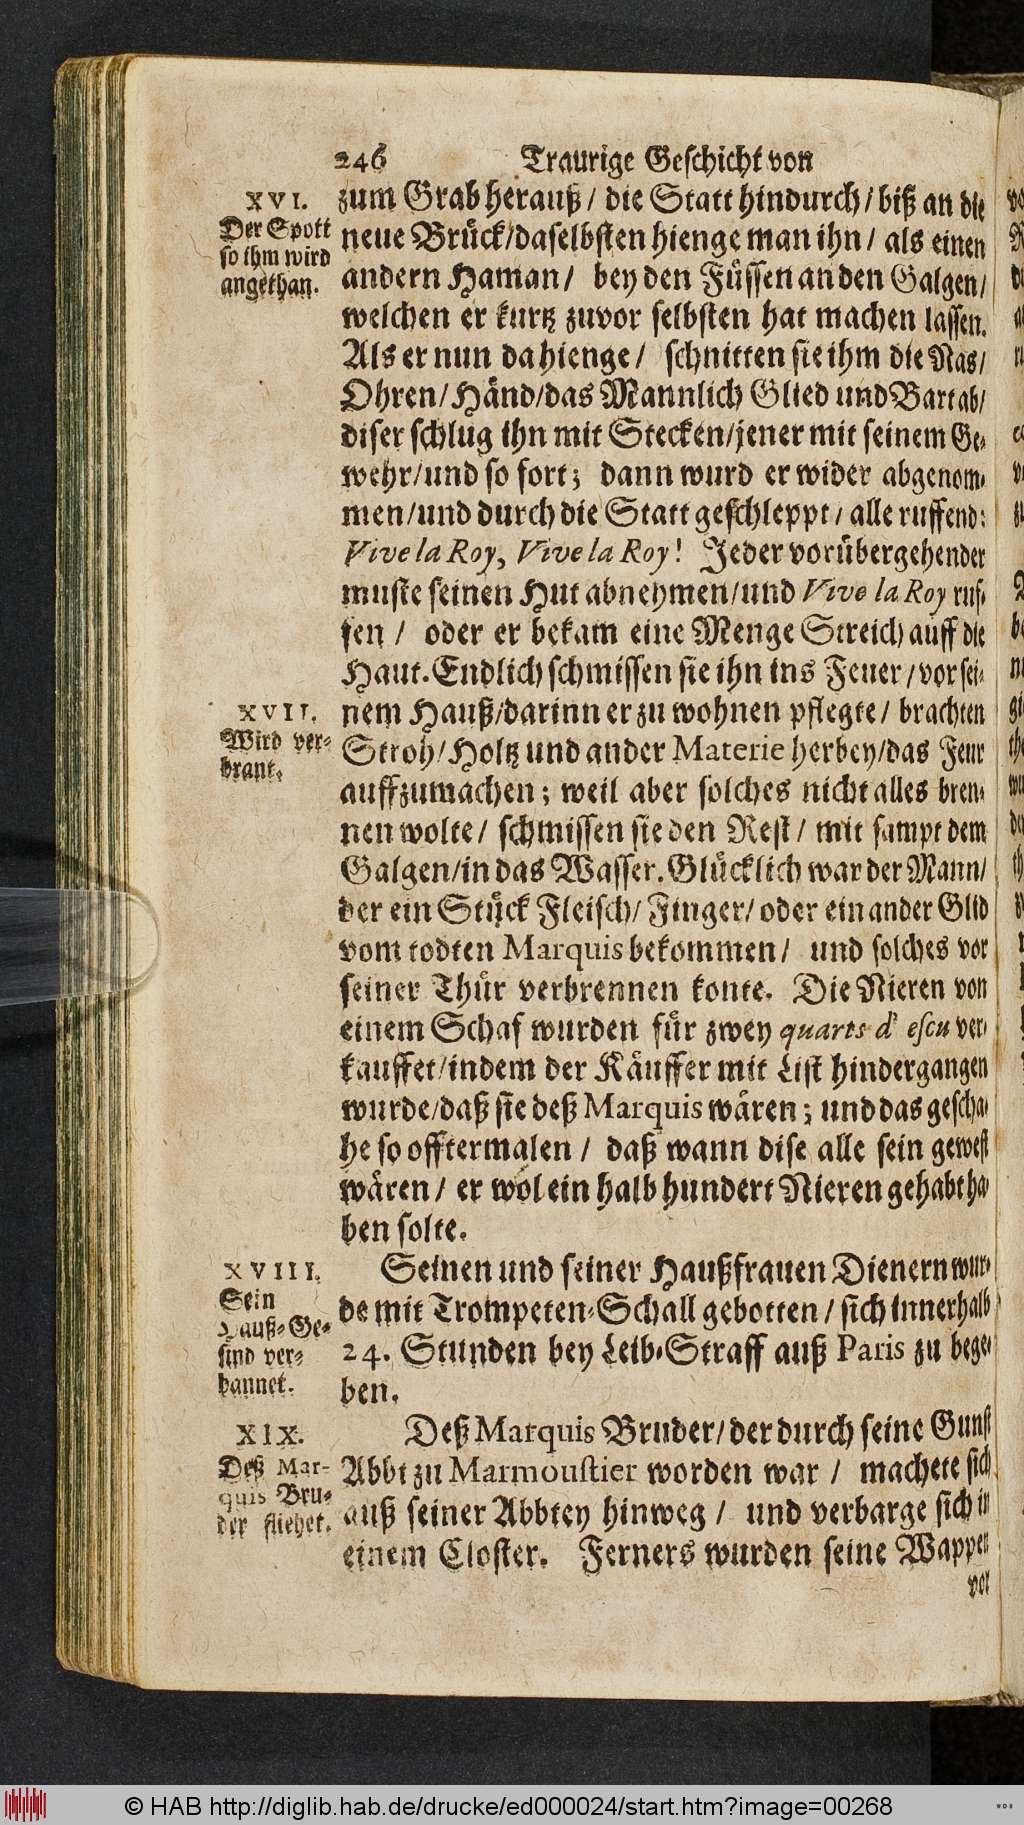 246 Traurige Geschicht von
XVI.
Der Spott
so ihm wird
angethan.
zum Grab herauß / die Statt hindurch / biß an die
neue Brück / daselbsten hienge man ihn / als einen
andern Haman / bey den Füssen an den Galgen /
welchen er kurtz zuvor selbsten hat machen lassen.
Als er nun da hienge / schnitten sie ihm die Nas /
Ohren / Händ / das Mannlich Glied und Bart ab /
diser schlug ihn mit Stecken / jener mit seinem Ge-
wehr / und so fort; dann wurd er wider abgenom-
men / und durch die Statt geschleppt / alle ruffend:
Vive la Roy, Vive la Roy! Jeder vorübergehender
muste seinen Hut abneymen / und Vive la Roy ruf-
fen / oder er bekam eine Menge Streich auff die
Haut. Endlich schmissen sie ihn ins Feuer / vor sei-
XVII.
Wird ver-
brant.
nem Hauß / darinn er zu wohnen pflegte / brachten
Stroh / Holtz und ander Materie herbey / das Feur
auffzumachen; weil aber solches nicht alles bren-
nen wolte / schmissen sie den Rest / mit sampt dem
Galgen / in das Wasser. Glücklich war der Mann /
der ein Stück Fleisch / Finger / oder ein ander Glid
vom todten Marquis bekommen / und solches vor
seiner Thür verbrennen konte. Die Nieren von
einem Schaf wurden für zwey quarts d' escu ver-
kauffet / indem der Käuffer mit List hindergangen
wurde / daß sie deß Marquis wären; und das gescha-
he so offtermalen / daß wann dise alle sein gewest
wären / er wol ein halb hundert Nieren gehabt ha-
ben solte.
XVIII.
Sein
Hauß-Ge-
sind ver-
bannet.
Seinen und seiner Haußfrauen Dienern wur-
de mit Trompeten-Schall gebotten / sich innerhalb
24. Stunden bey Leib-Straff auß Paris zu bege-
ben.
XIX.
Deß Mar-
quis Bru-
der fliehet.
Deß Marquis Bruder / der durch seine Gunst
Abbt zu Marmoustier worden war / machete sich
auß seiner Abbtey hinweg / und verbarge sich in
einem Closter. Ferners wurden seine Wappen
vor
© HAB http://diglib.hab.de/drucke/ed000024/start.htm?image=00268